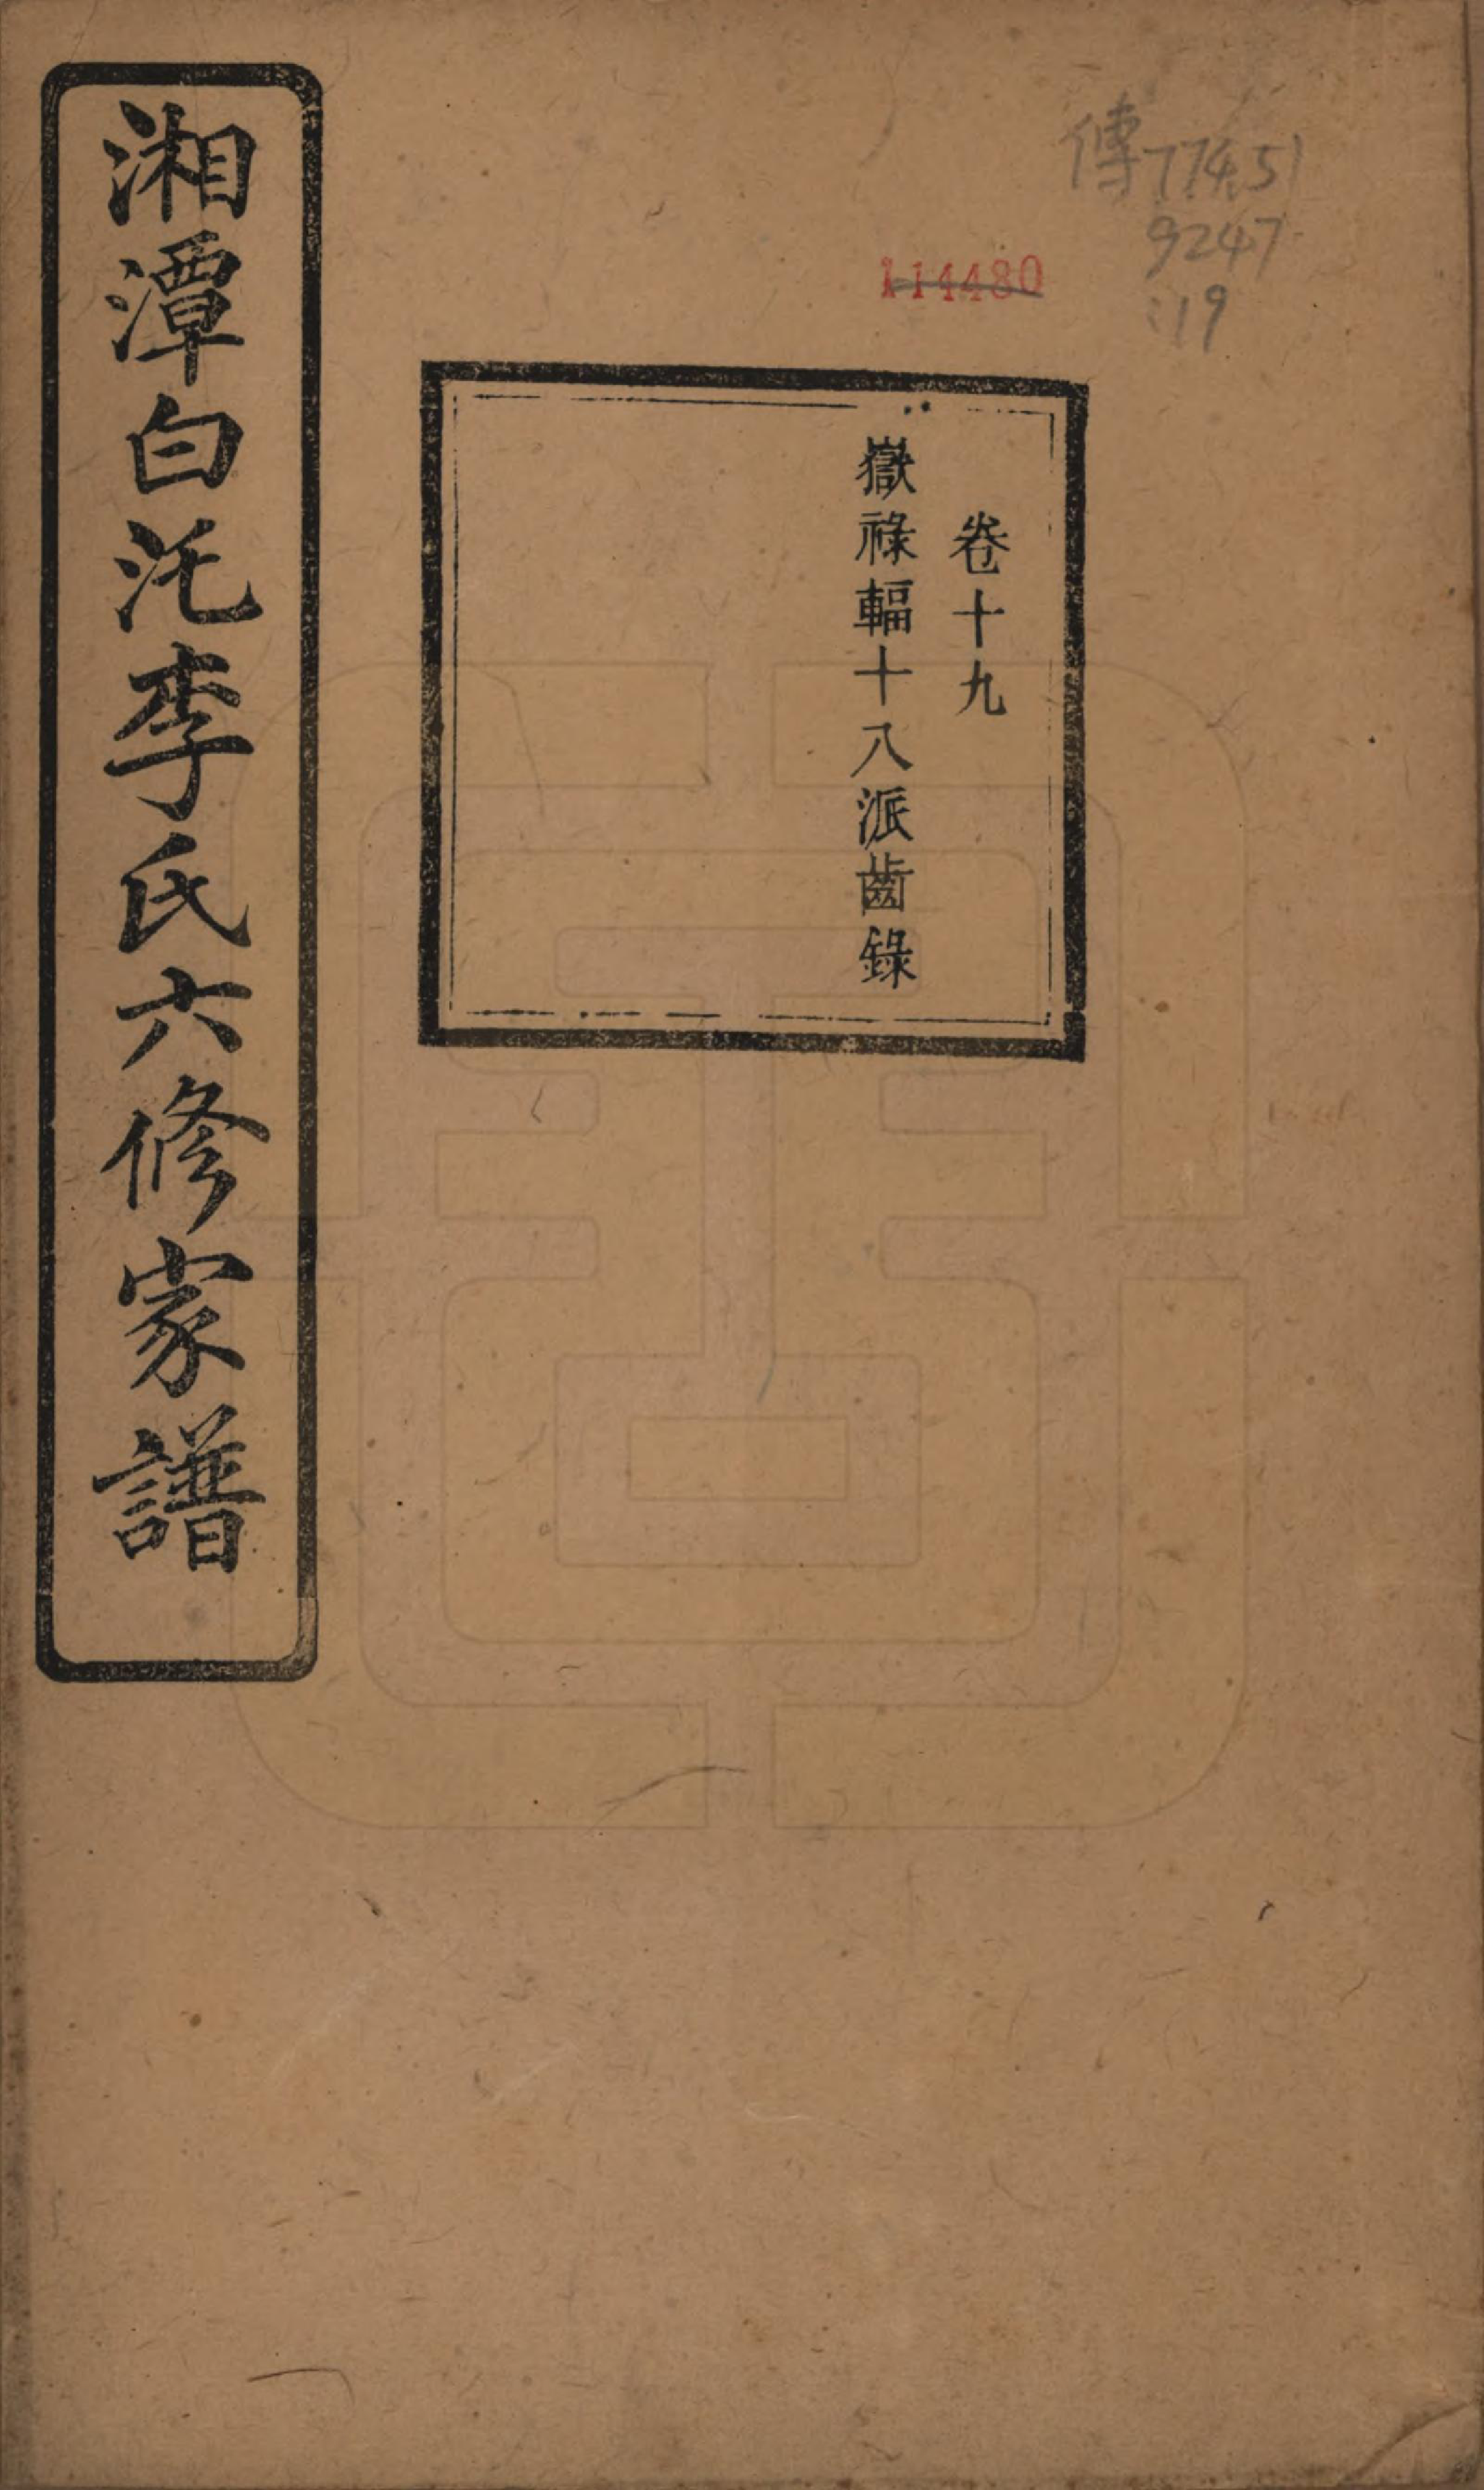 傳774.51
9247
:19
114480
卷十九
嶽祿輻十八派齒錄
湘潭白沱李氏六修家譜